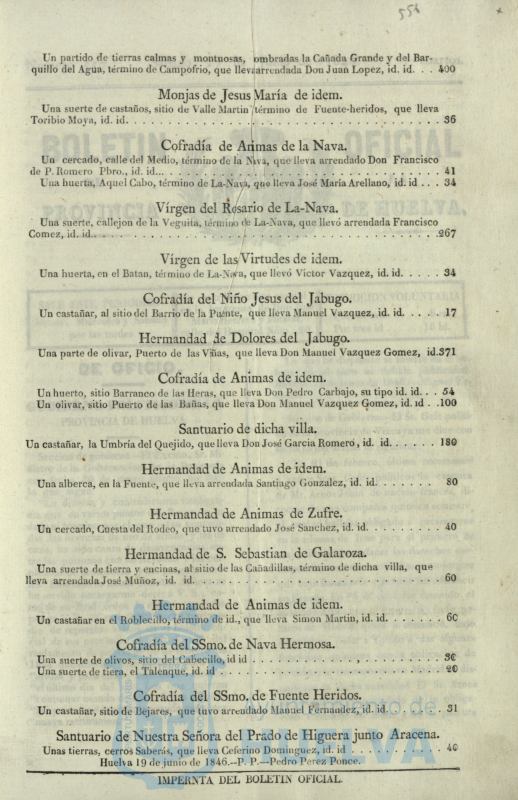 556
Un partido de tierras calmas y montuosas, ombradas la Cañada Grande y del Bar-
quillo del Agua, término de Campofrio, que lleva arrendada Don Juan Lopez, id. id. . . 400
Monjas de Jesus María de idem.
Una suerte de castaños, sitio de Valle Martin término de Fuente-heridos, que lleva
Toribio Moya, id. id. . . . . . . . . . . . . . . . . . . . . . . . . . . . 36
Cofradía de Animas de la Nava.
Un cercado, calle del Medio, término de la Nava, que lleva arrendado Don Francisco
de P. Romero Pbro., id. id... . . . . . . . . . . . . . . . . . . . . . . . . 41
Una huerta, Aquel Cabo, término de La-Nava, que lleva José María Arellano, id. id . . . 34
Vírgen del Rosario de La-Nava.
Una suerte, callejon de la Veguita, término de La-Nava, que llevó arrendada Francisco
Comez, id. id.. . . . . . . . . . . . . . . . . . . . . . . . . . . . . . .267
Vírgen de las Virtudes de idem.
Una huerta, en el Batan, término de La-Nava, que llevó Victor Vazquez, id. id. . . . . 34
Cofradía del Niño Jesus del Jabugo.
Un castañar, al sitio del Barrio de la Puente, que lleva Manuel Vazquez, id. id. . . . . 17
Hermandad de Dolores del Jabugo.
Una parte de olivar, Puerto de las Viñas, que lleva Don Manuel Vazquez Gomez, id.371
Cofradía de Animas de idem.
Un huerto, sitio Barranco de las Heras, que lleva Don Pedro Carbajo, su tipo id. id. . . 54
Un olivar, sitio Puerto de las Bañas, que lleva Don Manuel Vazquez Gomez, id. id . .100
Santuario de dicha villa.
Un castañar, la Umbría del Quejido, que lleva Don José Garcia Romero, id. id. . . . . . 180
Hermandad de Animas de idem.
Una alberca, en la Fuente, que lleva arrendada Santiago Gonzalez, id. id. . . . . . . 80
Hermandad de Animas de Zufre.
Un cercado, Cuesta del Rodeo, que tuvo arrendado José Sanchez, id. id. . . . . . . . . 40
Hermandad de S. Sebastian de Galaroza.
Una suerte de tierra y encinas, al sitio de las Cañadillas, término de dicha villa, que
lleva arrendada José Muñoz, id. id. . . . . . . . . . . . . . . . . . . . . . . 60
Hermandad de Animas de idem.
Un castañar en el Roblecillo, término de id., que lleva Simon Martin, id. id. . . . . . 60
Cofradía del SSmo. de Nava Hermosa.
Una suerte de olivos, sitio del Cabecillo, id id . . . . . . . . . . . . . . . . . 30
Una suerte de tiera, el Talenque, id. id . . . . . . . . . . . . . . . . . . . . 20
Cofradía del SSmo. de Fuente Heridos.
Un castañar, sitio de Bejares, que tuvo arrendado Manuel Fernandez, id. id. . . . . . 31
Santuario de Nuestra Señora del Prado de Higuera junto Aracena.
Unas tierras, cerros Saberás, que lleva Ceferino Dominguez, id. id . . . . . . . . . 40
Huelva 19 de junio de 1846.--P. P.--Pedro Perez Ponce.
IMPERNTA DEL BOLETIN OFICIAL.